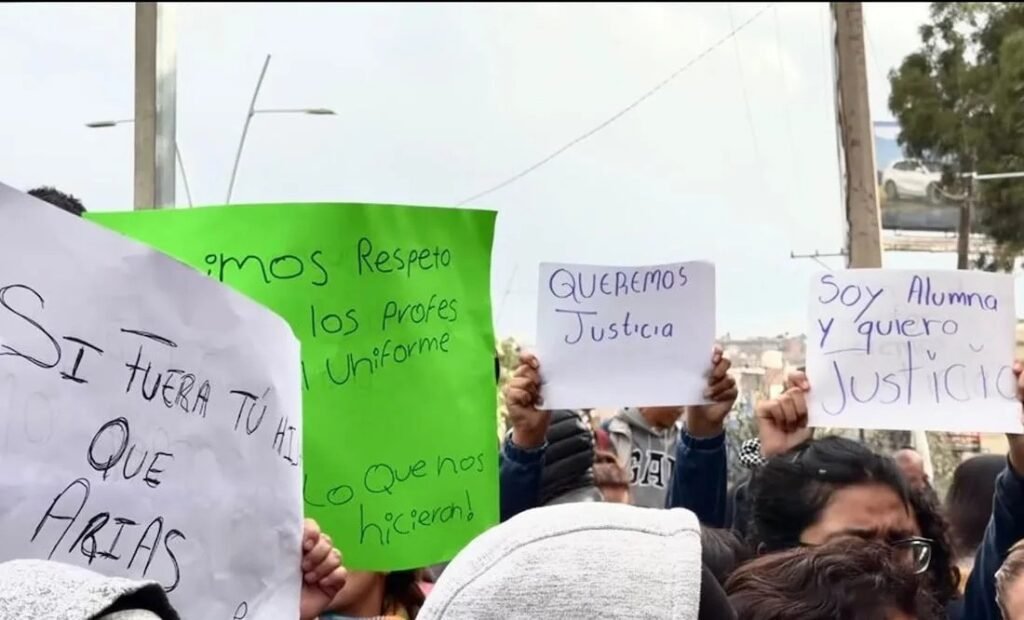 SI FUERA TU HI
QUE
ARIAS
imos Respeto
los profes
Uniforme
Lo Que nos
hicieron!
QUEREMOS
Justicia
Soy Alumna
y quiero
Justicia
GAP